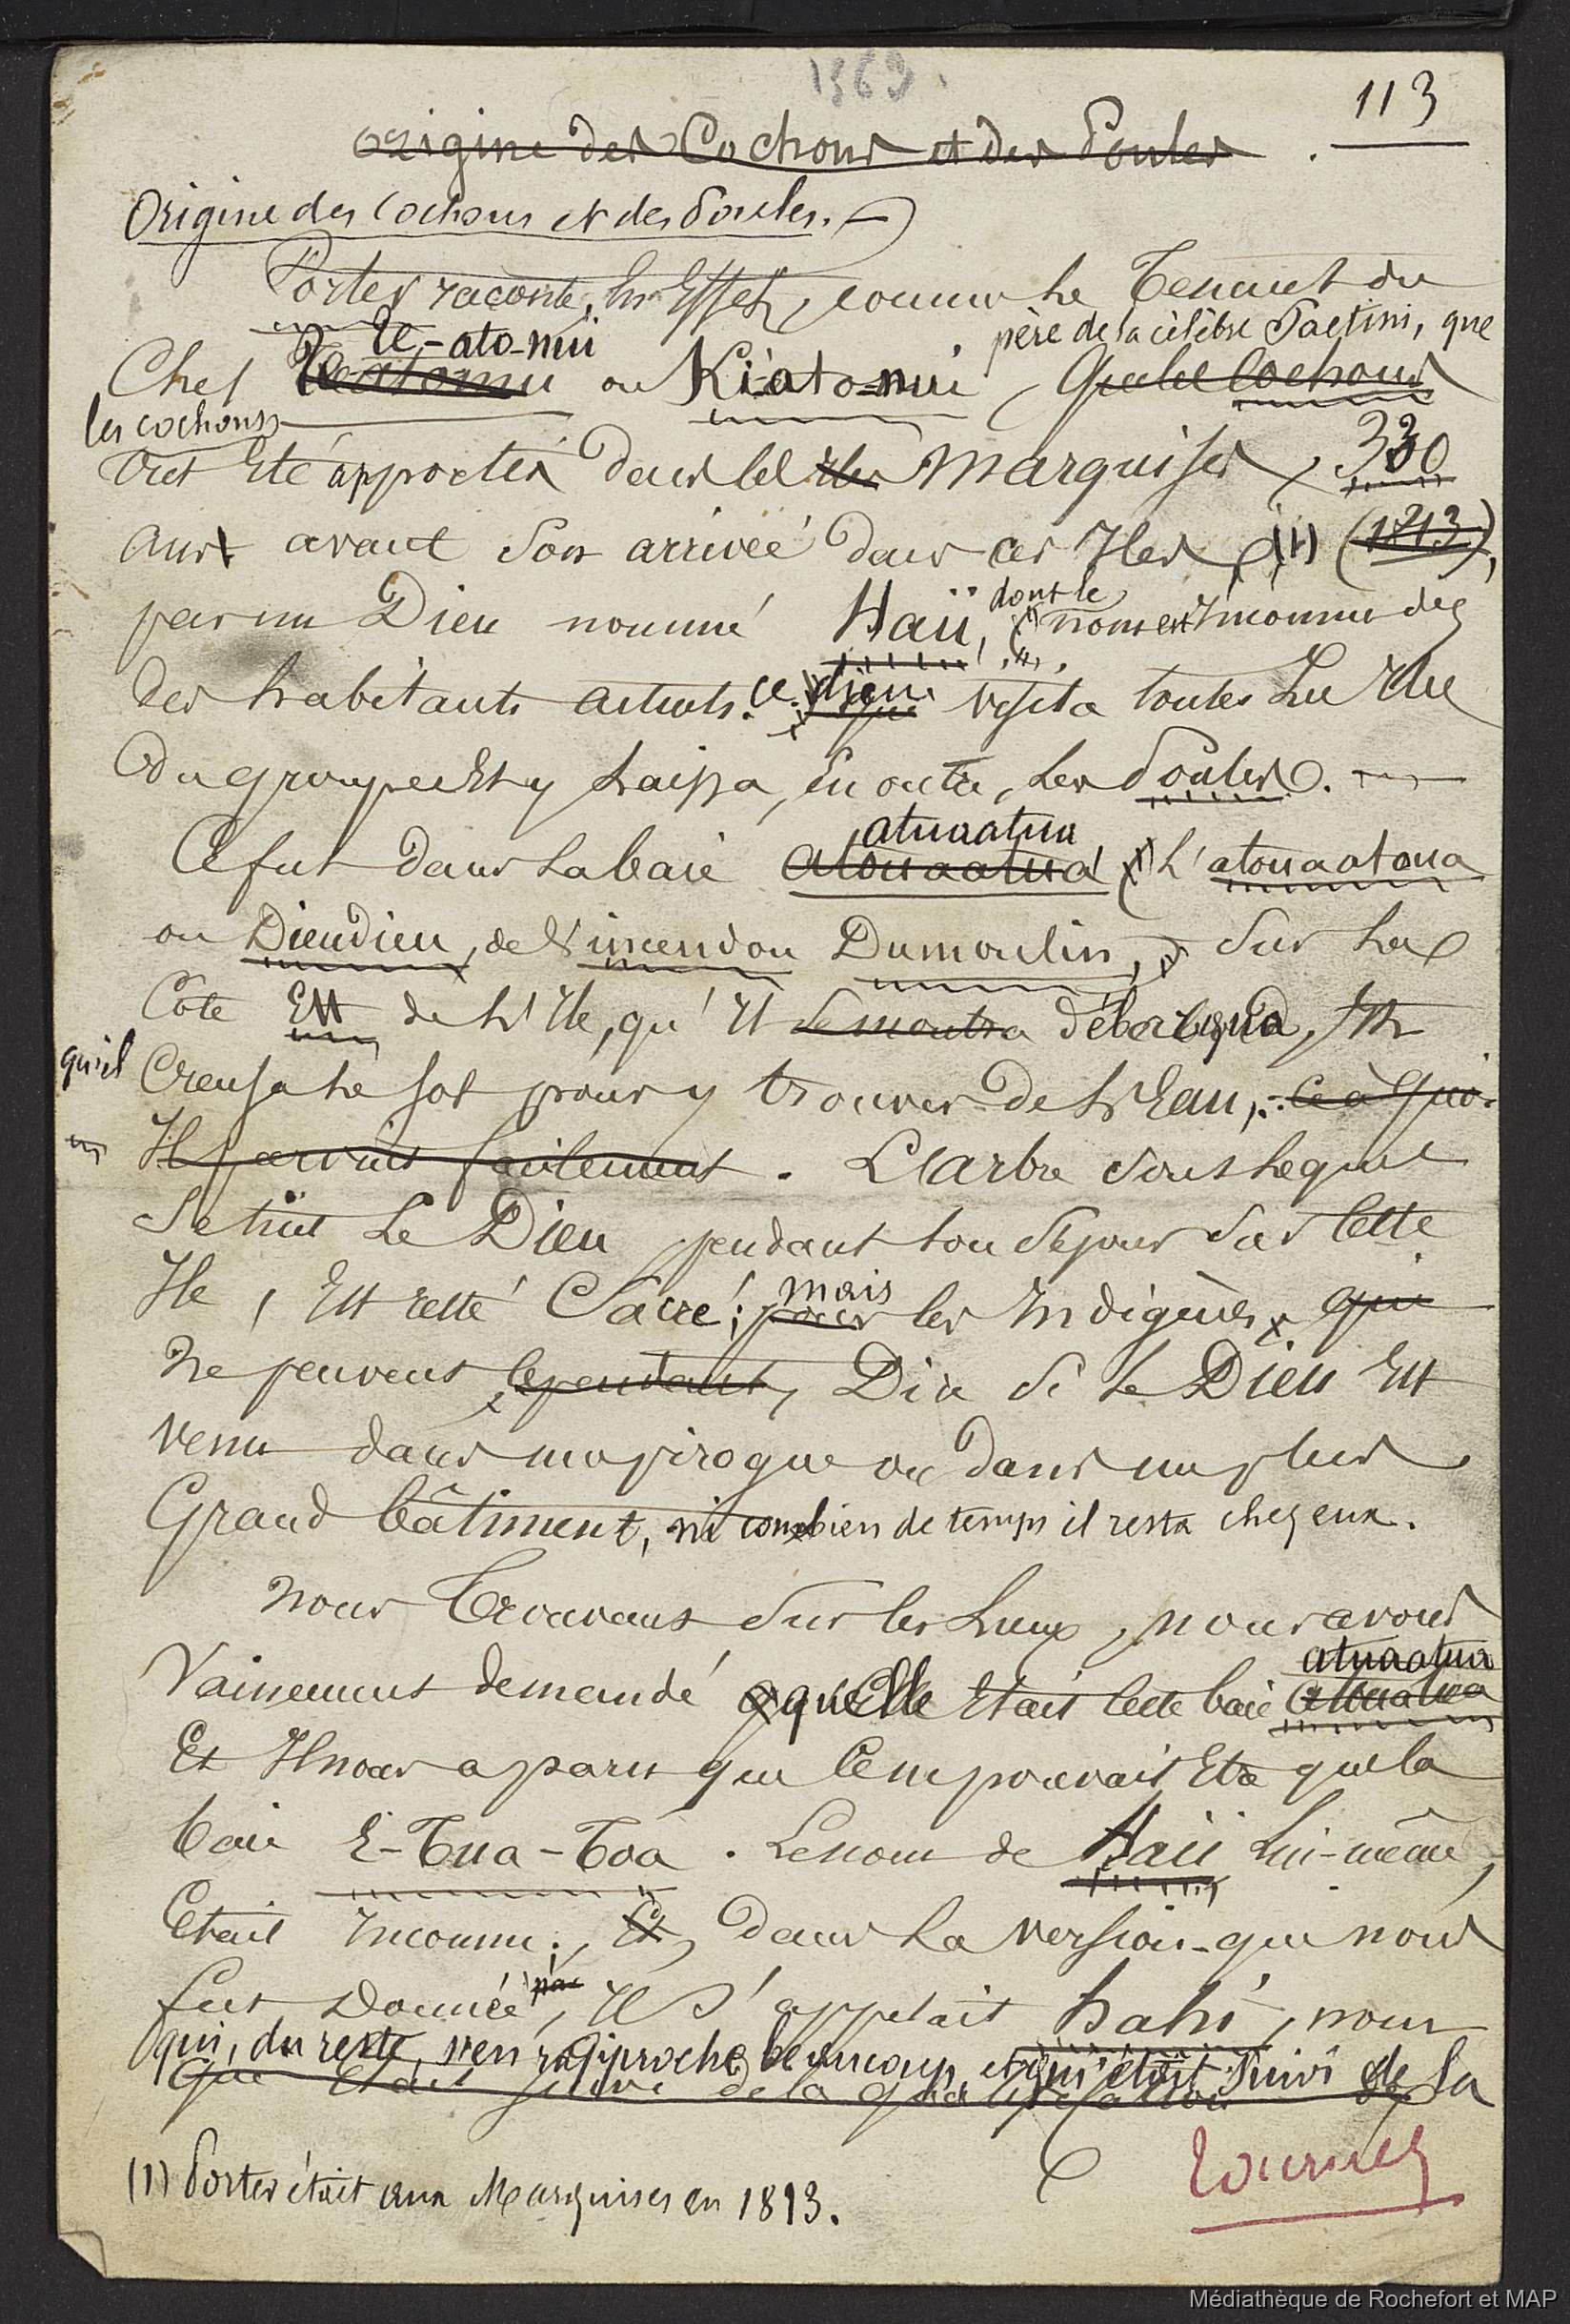 1369.
113
Origine des Cochons et des Poules.
Origine des Cochons et des Poules. —
Porter raconte, en Effet, comme le Tenant du
Te-ato-nui
père de la célèbre Paetini, que
Chef ou Kiato-nui, que les Cochons
les cochons
ont Eté apportés dans les Iles Marquises, 330
ans avant son arrivée dans ces Iles (1) (1813),
par un Dieu nommé Haii, dont le nom est Inconnu des
des habitants actuels. Ce dieu visita toutes les Iles
du groupe Et y laissa, En outre, les Poules.
atuaatua
Ce fut dans la baie atouaatua (L'atouaatoua
ou Dieudieu, de Vincendon Dumoulin, sur la
Côte Est de l'Ile, qu'Il se montra débarqua, Et
qu'il
Creusa le sol pour y trouver de l'Eau, ce à quoi
Il parvint facilement. L'arbre sous lequel
se tint Le Dieu pendant son séjour sur cette
Ile, Est resté Sacré; mais pour les Indigènes qui
ne peuvent cependant, Dire si le Dieu Est
venu dans une pirogue ou dans un plus
Grand bâtiment, ni combien de temps il resta chez eux.
Nous trouvant sur les lieux, nous avons
atuaatua
Vainement demandé quelle Etait cette baie
Et Il nous a paru que Ce ne pouvait Etre que la
baie E-Tua-Toa. Le nom de Haii lui-même,
Etait Inconnu; Et, dans la version que nous
par
fut Donnée, Il s'appelait hahi, nom
qui, du reste, s'en rapproche beaucoup, et qui était suivi de la
que Etait suivi de la qualification
Tournez
(1) Porter était aux Marquises en 1813.
Médiathèque de Rochefort et MAP